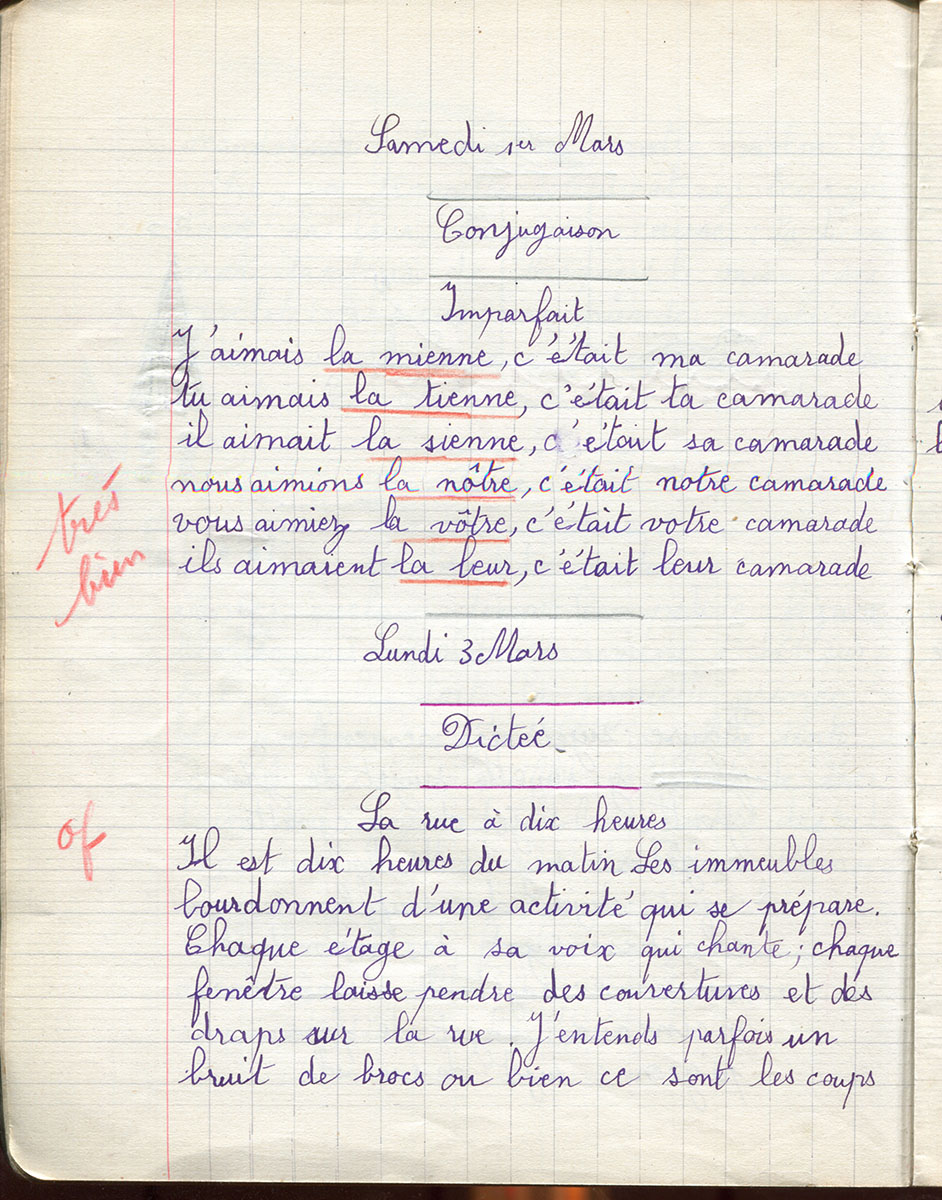 Samedi 1er Mars
Conjugaison
Imparfait
J'aimais la mienne, c'était ma camarade
tu aimais la tienne, c'était ta camarade
il aimait la sienne, c'était sa camarade
nous aimions la nôtre, c'était notre camarade
vous aimiez la vôtre, c'était votre camarade
ils aimaient la leur, c'était leur camarade
très
bien
Lundi 3 Mars
Dicteé
La rue à dix heures
Il est dix heures du matin Les immeubles
bourdonnent d'une activité qui se prépare.
Chaque étage à sa voix qui chante; chaque
fenêtre laisse pendre des couvertures et des
draps sur la rue. J'entends parfois un
bruit de brocs ou bien ce sont les coups